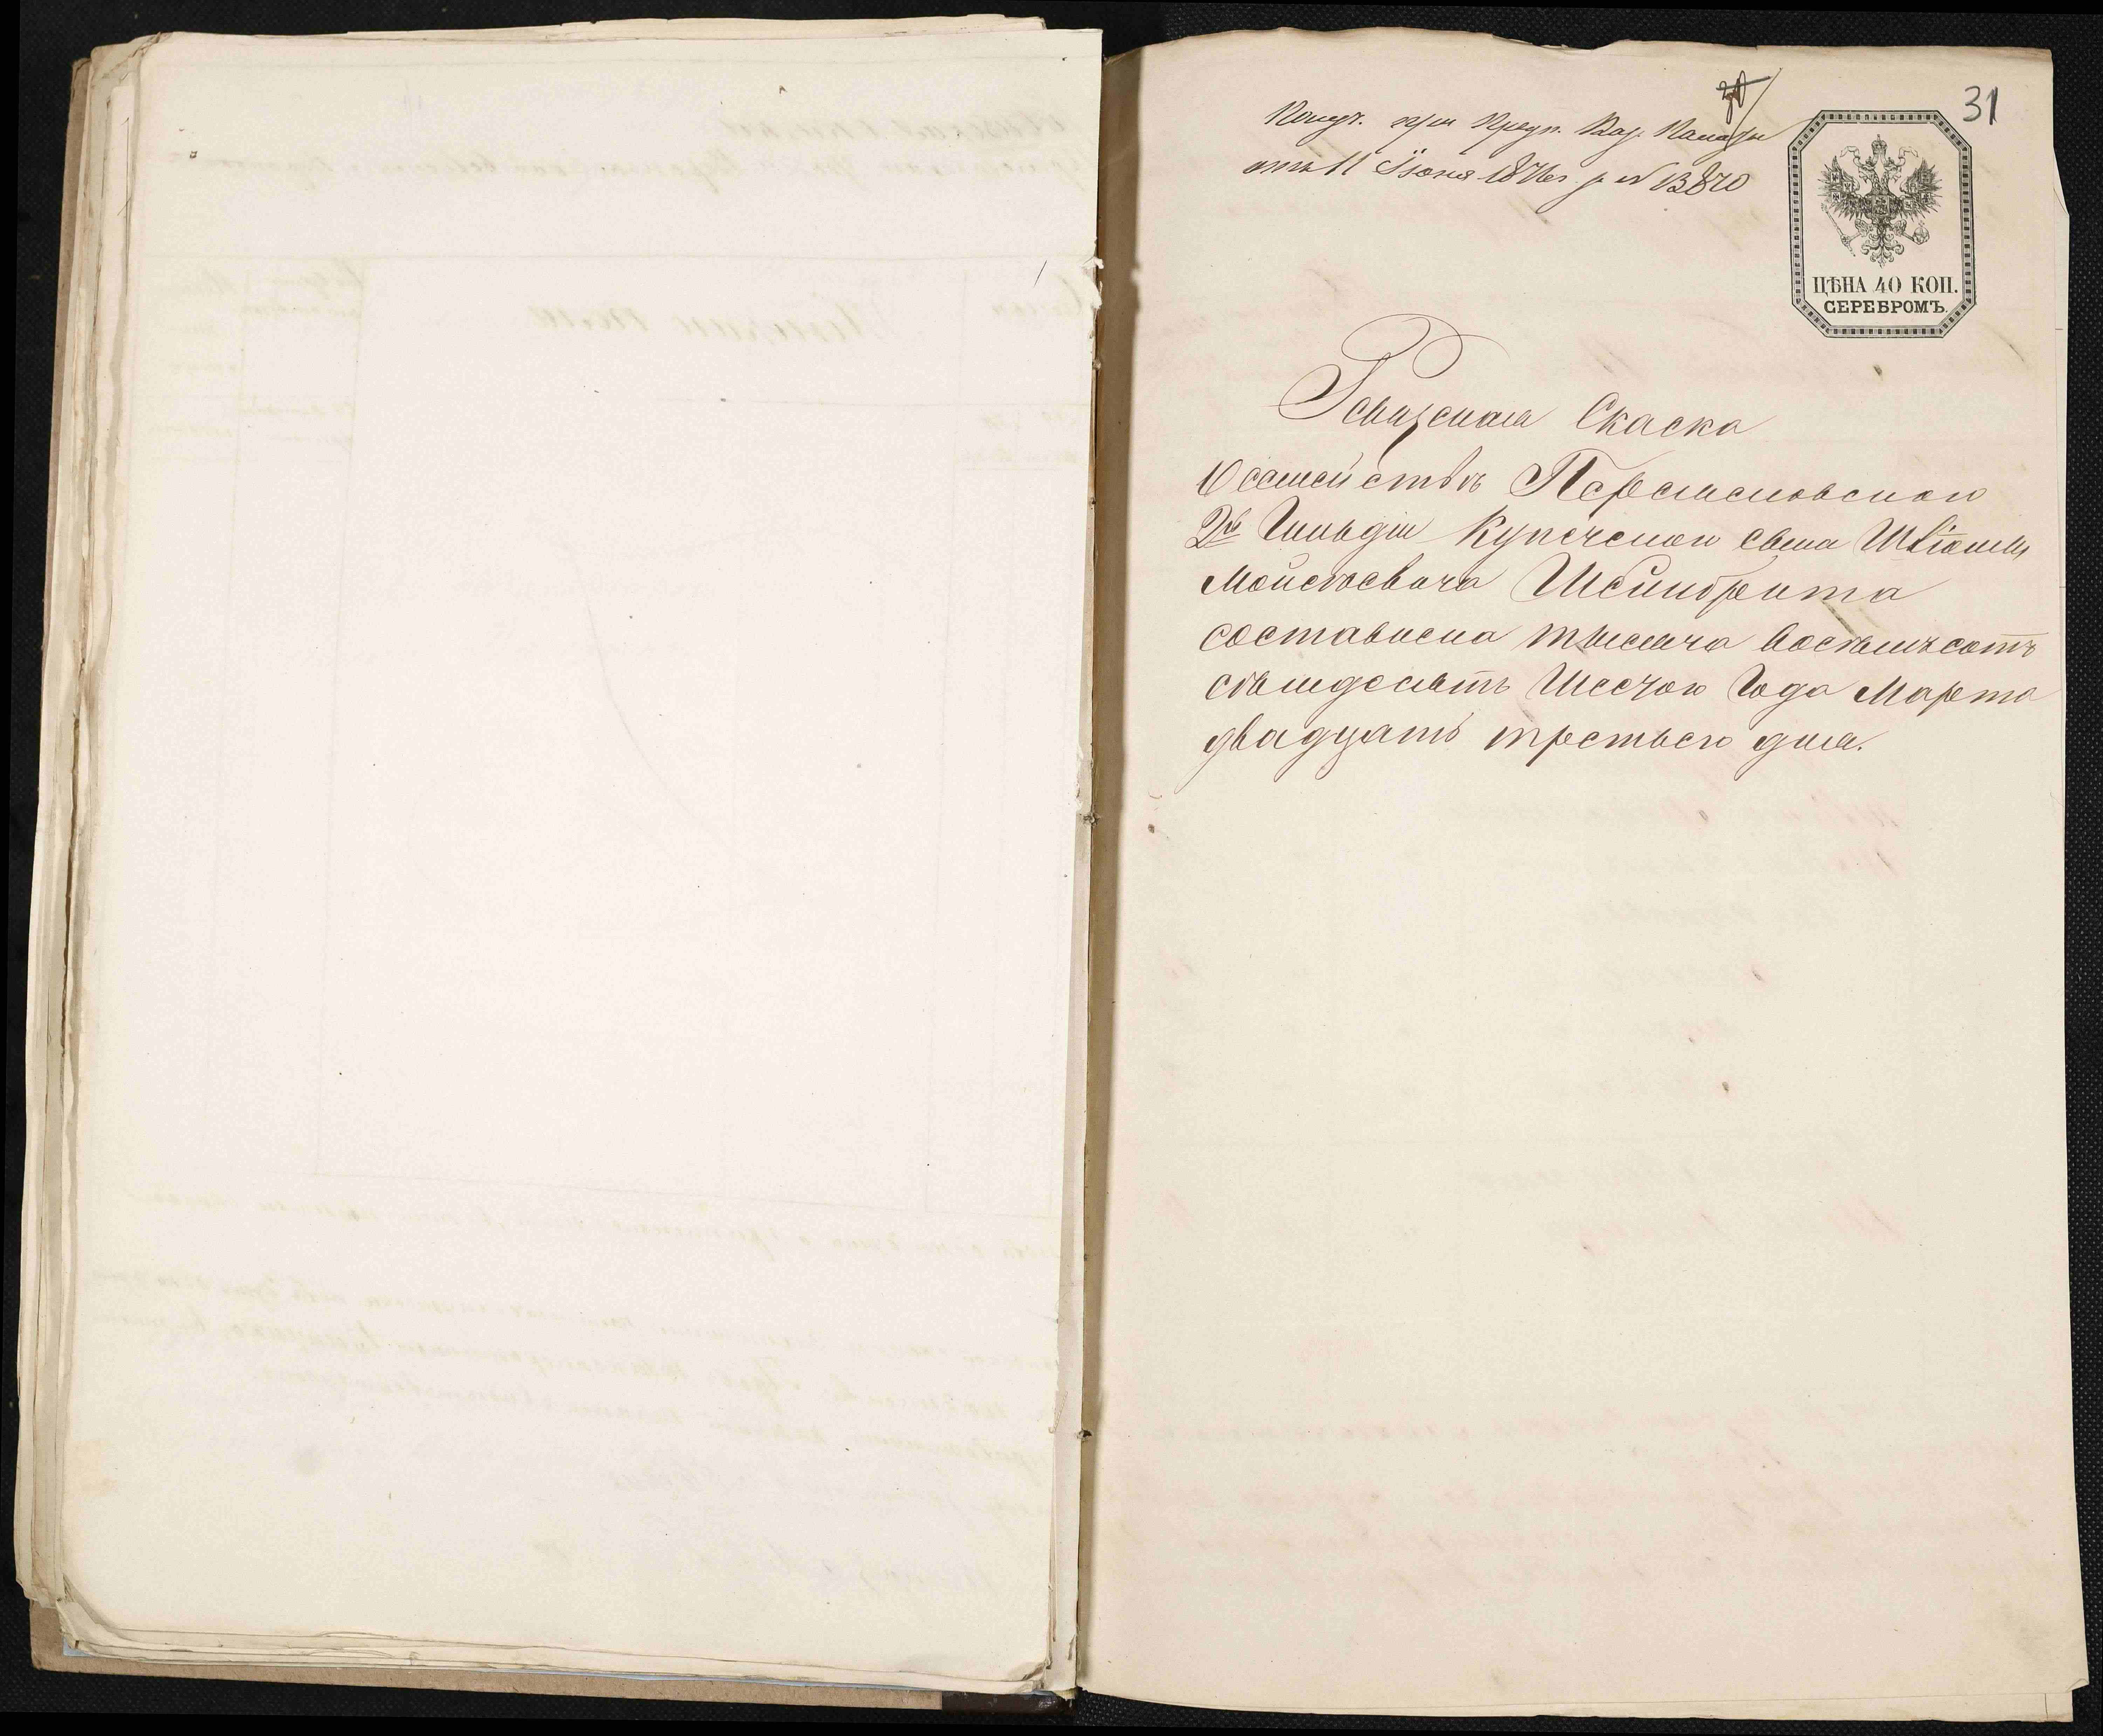 30
31
Получ. при Предп. Каз. Палаты
отъ 11 Іюня 1876 г. за № 13870
ЦѢНА 40 КОП.
СЕРЕБРОМЪ.
Ревизская Скаска
О семействѣ Переяславскаго
2й Гильдіи Купеческаго сына
Мойсѣевича Шейнбрита
составлена тысяча восѣмъсотъ
сѣмдесятъ Шестого Года Марта
двадцать третьего дня.